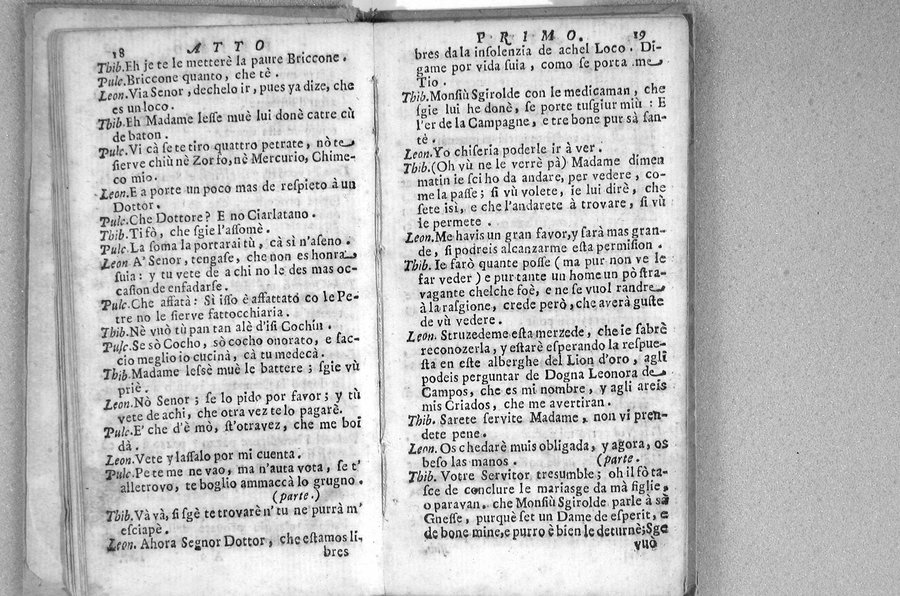 18 ATTO
Thib. Eh je te le metterè la paure Briccone.
Pulc. Briccone quanto, che tè.
Leon. Via Senor, dechelo ir, pues ya dize, che
es un loco.
Thib. Eh Madame lesse muè lui donè catre cù
de baton.
Pulc. Vi cà se te tiro quattro petrate, nò te
sierve chiù nè Zorfo, nè Mercurio, Chime-
co mio.
Leon. E a porte un poco mas de respieto à un
Dottor.
Pulc. Che Dottore? E no Ciarlatano.
Thib. Ti fò, che sgie l'assomè.
Pulc. La soma la portarai tù, cà si n'aseno.
Leon. A' Senor, tengase, che non es honra
suia: y tu vete de a chi no le des mas oc-
casion de enfadarse.
Pulc. Che affatà: Sì isso è affattato co le Pe-
tre no le sierve fattocchiaria.
Thib. Nè vuò tù pan tan alè d'isi Cochín.
Pulc. Se sò Cocho, sò cocho onorato, e fac-
cio meglio io cucinà, cà tu medecà.
Thib. Madame lessè muè le battere; sgie vù
priè.
Leon. Nò Senor; se lo pido por favor; y tù
vete de achi, che otra vez te lo pagarè.
Pulc. E' che d'è mò, st'otra vez, che me boi
dà.
Leon. Vete y lassalo por mi cuenta.
Pulc. Pe te me ne vao, ma n'auta vota, se t'
alletrovo, te boglio ammaccà lo grugno.
(parte.)
Thib. Và và, si sgè te trovarè n' tu ne purrà m'
esciapè.
Leon. Ahora Segnor Dottor, che estamos li-
bres
PRIMO. 19
bres da la insolenzia de achel Loco. Di-
game por vida suia, como se porta me
Tio.
Thib. Monsiù Sgirolde con le medicaman, che
sgie lui he donè, se porte tusgiur miù: E
l'er de la Campagne, e tre bone pur sà san-
tè.
Leon. Yo chiseria poderle ir à ver.
Thib. (Oh vù ne le verrè pà) Madame dimen
matin ie sci ho da andare, per vedere, co-
me la passe; si vù volete, ie lui dirè, che
sete isi, e che l'andarete à trovare, si vù
ie permete.
Leon. Me havis un gran favor, y farà mas gran-
de, si podreis alcanzarme esta permision.
Thib. Ie farò quante posse (ma pur non ve le
far veder) e pur tante un home un pò stra-
vagante chelche foè, e ne se vuol randre
à la rasgione, crede però, che averà guste
de vù vedere.
Leon. Struzedeme esta merzede, che ie sabrè
reconozerla, y estarè esperando la respue-
sta en este alberghe del Lion d'oro, agli
podeis perguntar de Dogna Leonora de
Campos, che es mi nombre, y agli areis
mis Criados, che me avertiran.
Thib. Sarete servite Madame, non vi pren-
dete pene.
Leon. Os chedarè muis obligada, y agora, os
beso las manos. (parte.
Thib. Votre Servitor tresumble; oh il fò ta-
sce de conclure le mariasge da mà figlie,
o paravan, che Monsiù Sgirolde parle à sà
Gnesse, purquè set un Dame de esperit, e
de bone mine, e purro è bien le deturnè; Sge
vuò